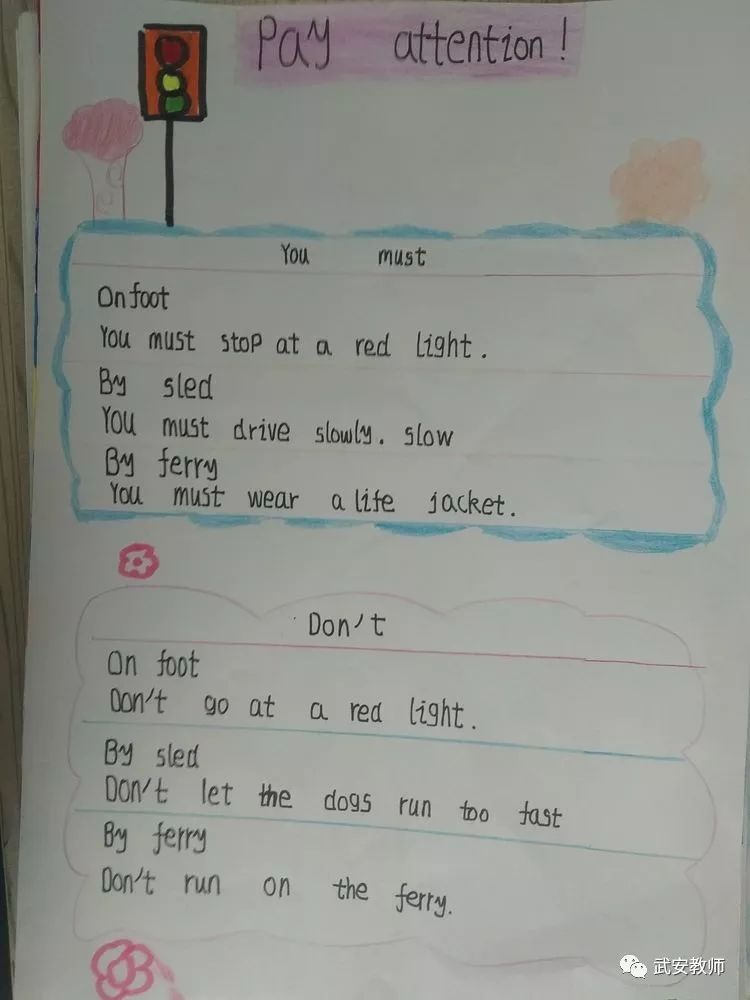 Pay attention!
You must
On foot
You must stop at a red light.
By sled
You must drive slowly. slow
By ferry
You must wear a life jacket.
Don't
On foot
Don't go at a red light.
By sled
Don't let the dogs run too fast
By ferry
Don't run on the ferry.
武安教师